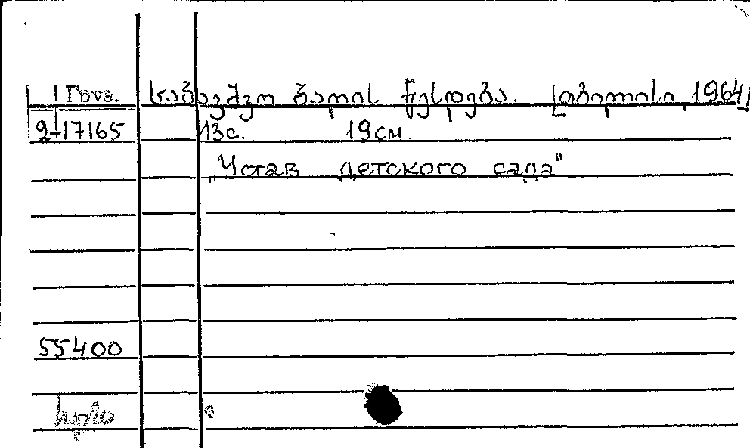 საბავშვო ბაღის წესდება. [თბილისი, 1964]
2-17165 13с. 19см.
„Устав детского сада"
55400